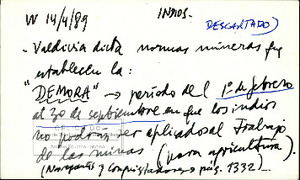 W 14/4/89 INDIOS. DESCARTADO)
- Valdivia dicta normas mineras que
establecen la:
"DEMORA" → período del 1º de febrero
al 30 de septiembre en que los indios
no podrán ser aplicados al trabajo
de las minas (para agricultura).
(Noroganés y Conquistadores pág. 1332)